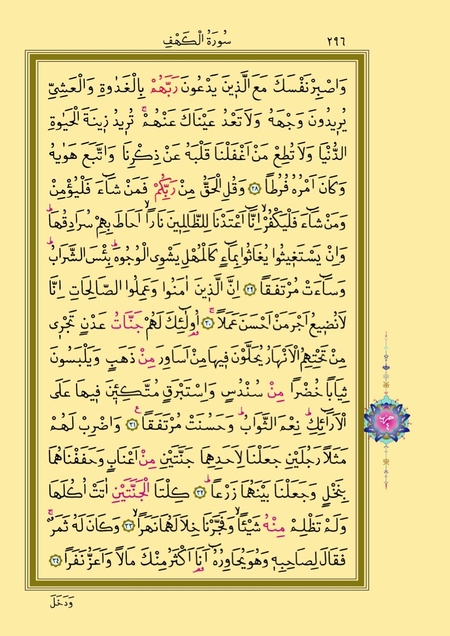 ٢٩٦ سُورَةُ الْكَهْفِ
وَاصْبِرْ نَفْسَكَ مَعَ الَّذ۪ينَ يَدْعُونَ رَبَّهُمْ بِالْغَدٰوةِ وَالْعَشِيِّ
يُر۪يدُونَ وَجْهَهُ وَلَا تَعْدُ عَيْنَاكَ عَنْهُمْۚ تُر۪يدُ ز۪ينَةَ الْحَيٰوةِ
الدُّنْيَا وَلَا تُطِعْ مَنْ اَغْفَلْنَا قَلْبَهُ عَنْ ذِكْرِنَا وَاتَّبَعَ هَوٰيهُ
وَكَانَ اَمْرُهُ فُرُطًا ﴿٢٨﴾ وَقُلِ الْحَقُّ مِنْ رَبِّكُمْ فَمَنْ شَٓاءَ فَلْيُؤْمِنْ
وَمَنْ شَٓاءَ فَلْيَكْفُرْۙ اِنَّٓا اَعْتَدْنَا لِلظَّالِم۪ينَ نَارًاۙ اَحَاطَ بِهِمْ سُرَادِقُهَاۜ
وَاِنْ يَسْتَغ۪يثُوا يُغَاثُوا بِمَٓاءٍ كَالْمُهْلِ يَشْوِي الْوُجُوهَۜ بِئْسَ الشَّرَابُۜ
وَسَٓاءَتْ مُرْتَفَقًا ﴿٢٩﴾ اِنَّ الَّذ۪ينَ اٰمَنُوا وَعَمِلُوا الصَّالِحَاتِ اِنَّا
لَا نُض۪يعُ اَجْرَ مَنْ اَحْسَنَ عَمَلًاۚ ﴿٣٠﴾ اُو۬لٰٓئِكَ لَهُمْ جَنَّاتُ عَدْنٍ تَجْر۪ي
مِنْ تَحْتِهِمُ الْاَنْهَارُ يُحَلَّوْنَ ف۪يهَا مِنْ اَسَاوِرَ مِنْ ذَهَبٍ وَيَلْبَسُونَ
ثِيَابًا خُضْرًا مِنْ سُنْدُسٍ وَاِسْتَبْرَقٍ مُتَّكِـ۪ٔينَ ف۪يهَا عَلَى
الْاَرَٓائِكِۜ نِعْمَ الثَّوَابُۜ وَحَسُنَتْ مُرْتَفَقًا۟ ﴿٣١﴾ وَاضْرِبْ لَهُمْ
مَثَلًا رَجُلَيْنِ جَعَلْنَا لِاَحَدِهِمَا جَنَّتَيْنِ مِنْ اَعْنَابٍ وَحَفَفْنَاهُمَا
بِنَخْلٍ وَجَعَلْنَا بَيْنَهُمَا زَرْعًاۜ ﴿٣٢﴾ كِلْتَا الْجَنَّتَيْنِ اٰتَتْ اُكُلَهَا
وَلَمْ تَظْلِمْ مِنْهُ شَيْـًٔاۙ وَفَجَّرْنَا خِلَالَهُمَا نَهَرًاۙ ﴿٣٣﴾ وَكَانَ لَهُ ثَمَرٌۚ
فَقَالَ لِصَاحِبِه۪ وَهُوَ يُحَاوِرُهُٓ اَنَا۬ اَكْثَرُ مِنْكَ مَالًا وَاَعَزُّ نَفَرًا ﴿٣٤﴾
وَدَخَلَ